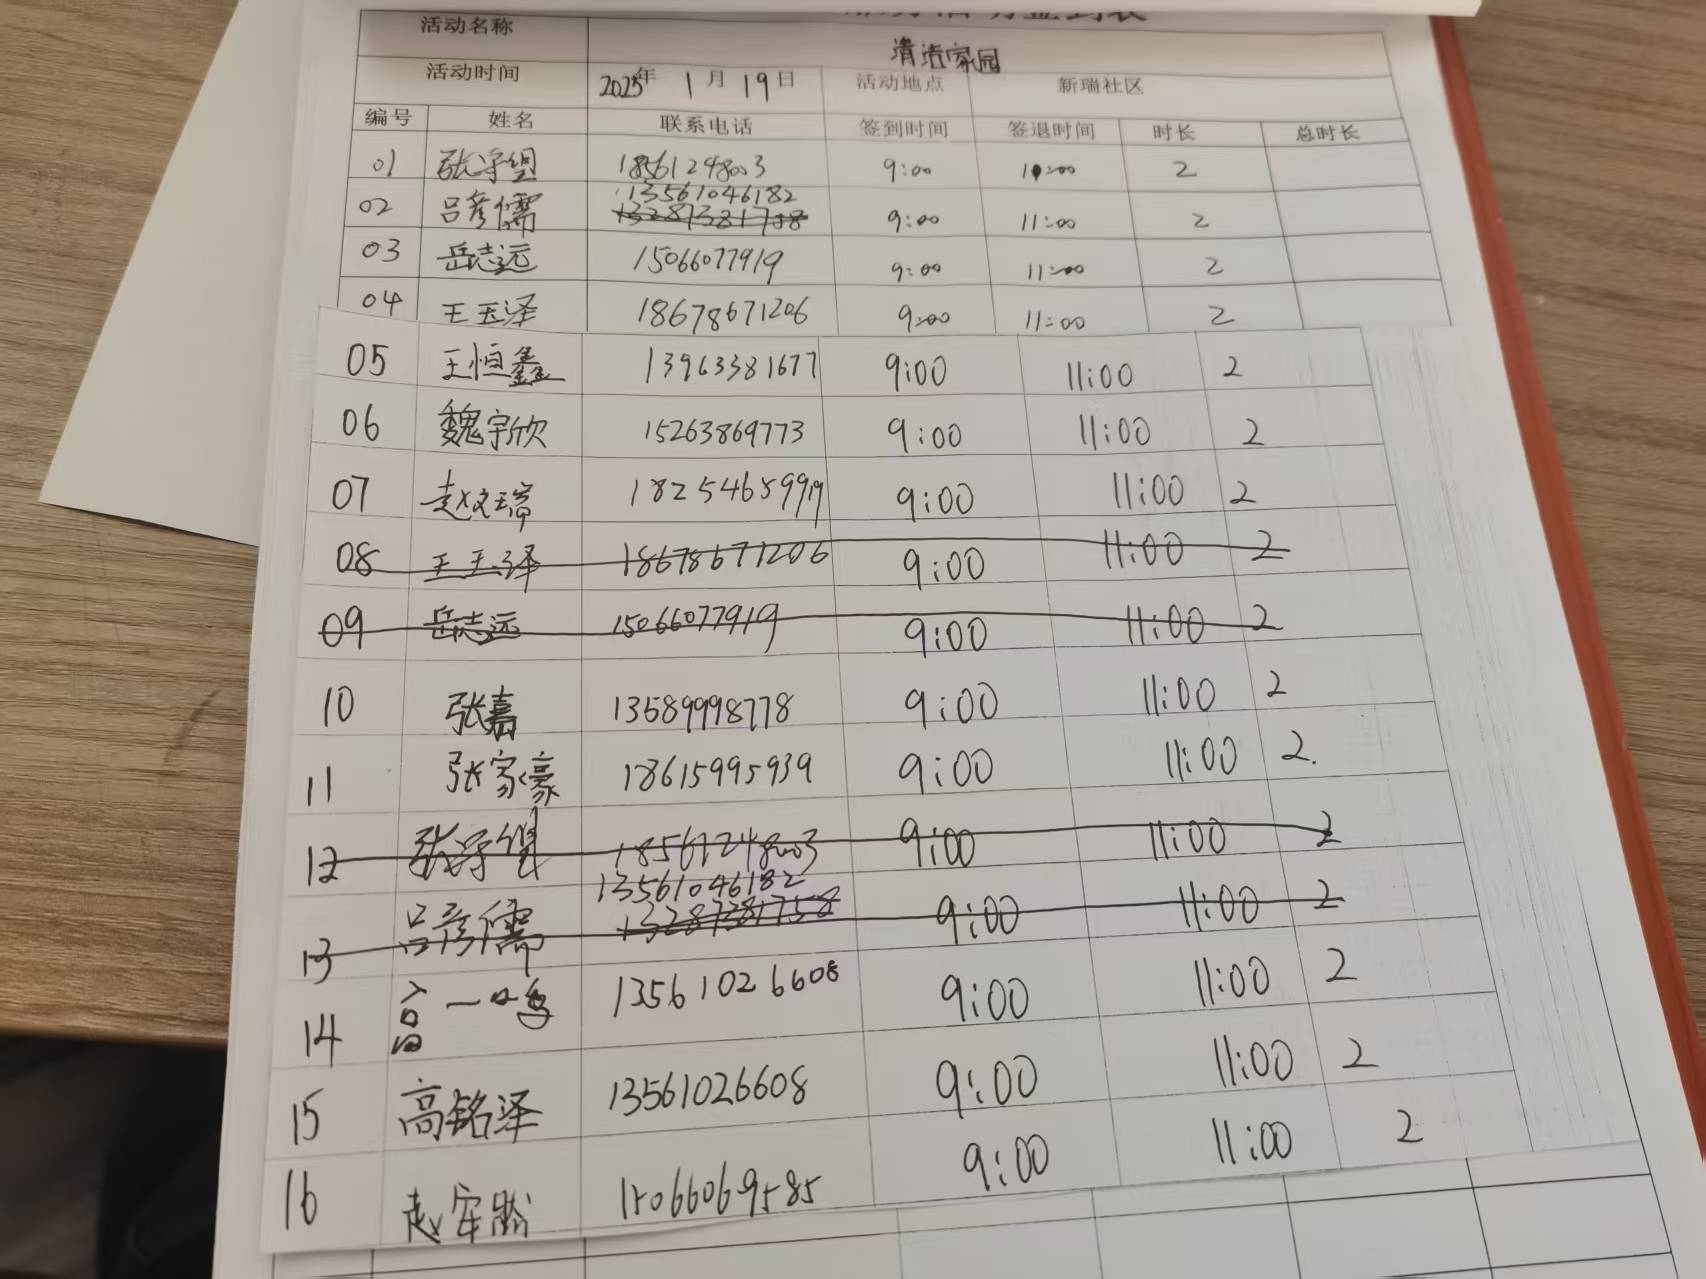 活动名称 清洁家园
活动时间 2025年 1月19日 活动地点 新瑞社区
编号 姓名 联系电话 签到时间 签退时间 时长 总时长
01 18561248003 9:00 11:00 2
02 吕彦儒 13561046182 9:00 11:00 2
13287381758
03 岳志远 15066077919 9:00 11:00 2
04 王玉泽 18678671206 9:00 11:00 2
05 王恒鑫 13963381677 9:00 11:00 2
06 魏宇欣 15263869773 9:00 11:00 2
07 赵文瑞 18254659919 9:00 11:00 2
08 王玉泽 18678671206 9:00 11:00 2
09 岳志远 15066077919 9:00 11:00 2
10 张嘉 13589998778 9:00 11:00 2
11 张家豪 18615995939 9:00 11:00 2.
12 18561248003 9:00 11:00 2
13 吕彦儒 13561046182 9:00 11:00 2
13287381758
14 高一鸣 13561026608 9:00 11:00 2
15 高铭泽 13561026608 9:00 11:00 2
16 15066069585 9:00 11:00 2